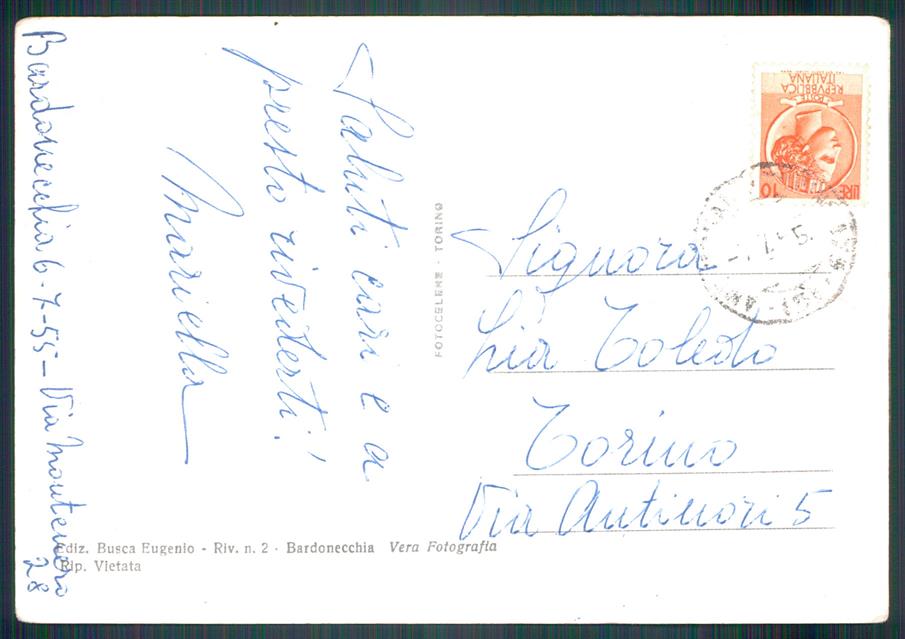 Bardonecchia 6-7-55 - Via Montenero
28
Saluti cari e a
presto rivederti!
Mariella
FOTOCELERE - TORINO
POSTE
REPVBBLICA
ITALIANA
LIRE 10
Signora
Lia Toledo
Torino
Via Antinori 5
Ediz. Busca Eugenio - Riv. n. 2 - Bardonecchia Vera Fotografia
Rip. Vietata